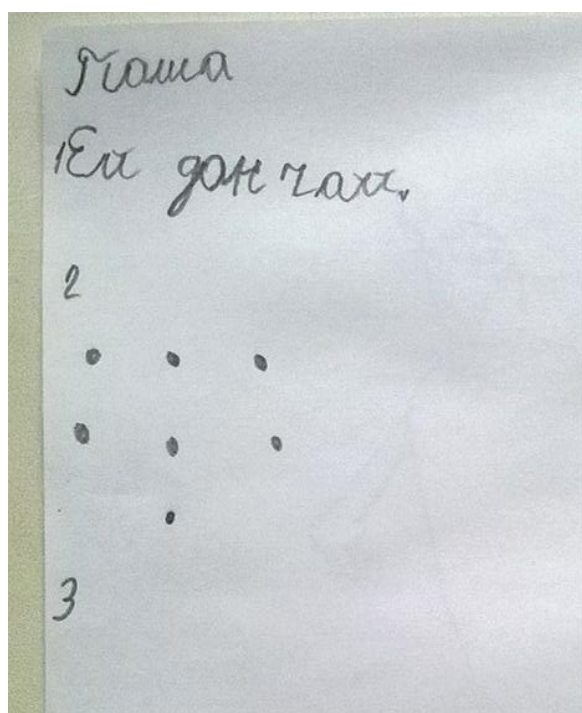 Паша
1 Еи дан чаи.
2
3